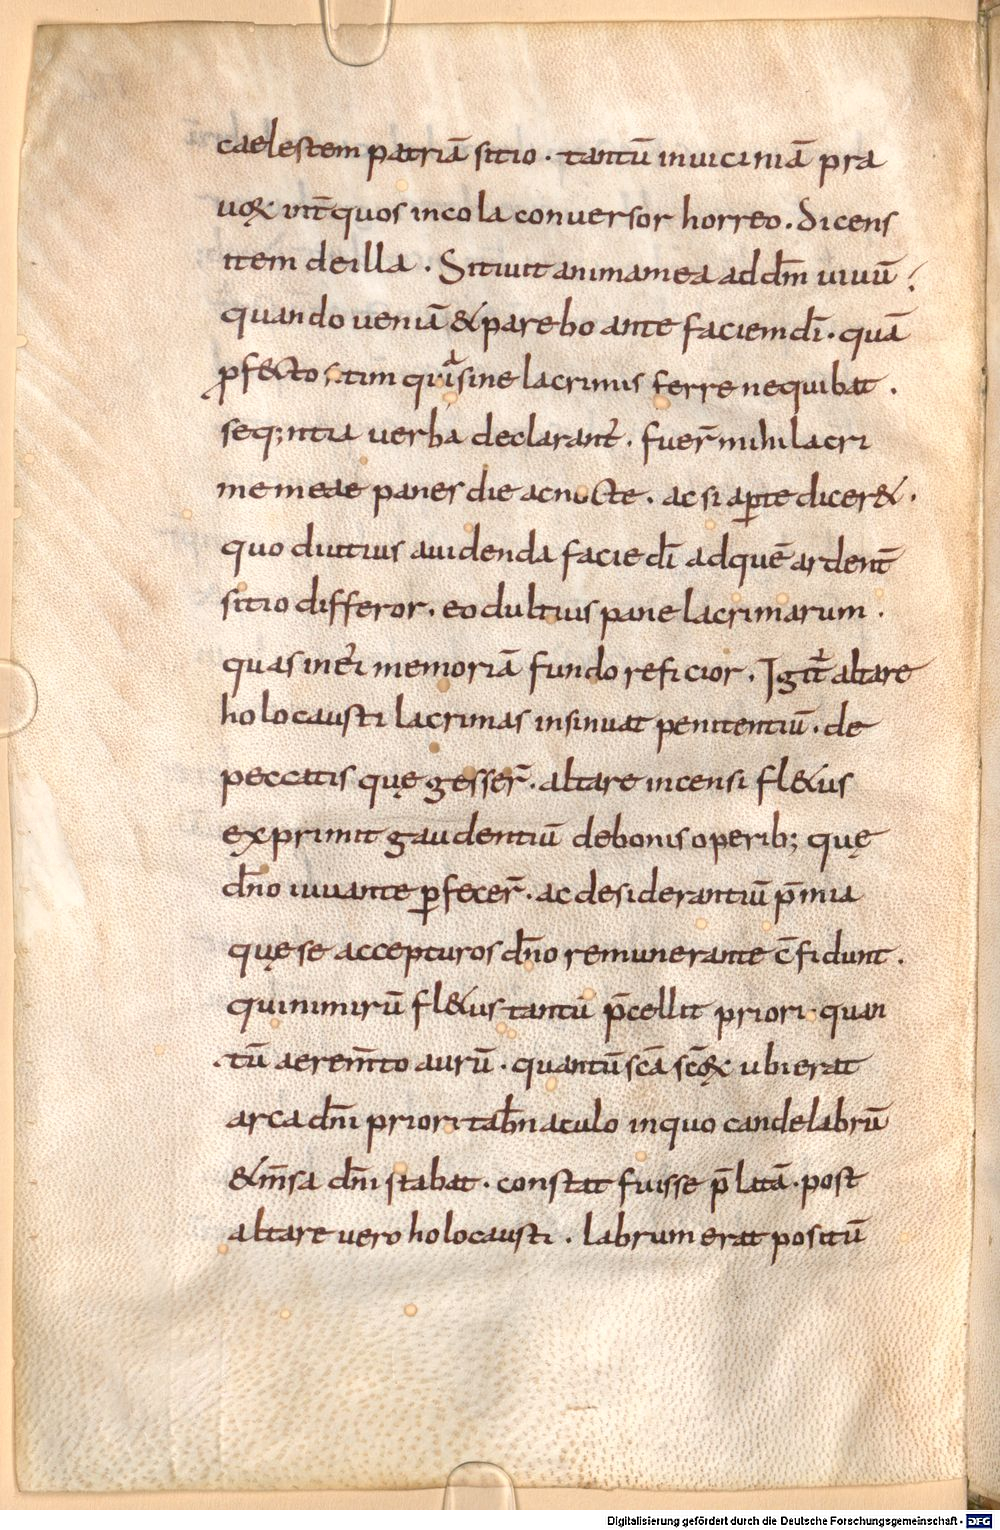 caelestem patriā sitio · tantū inuiciniā pra
uoꝝ int̄ quos incola conuersor horreo. Dicens
item deilla. Sitiuit animamea addm̄ uiuū;
quando ueniā & parebo ante faciem dī. quā
ꝓfecto sitim quia sine lacrimis ferre nequibat.
seq;ntia uerba declarant. fuer̄ mihi lacri
me meae panes die ac nocte. ac si aꝑte dicer&.
quo diutius auidenda facie dī adquē ardent̄
sitio differor. eo dultius pane lacrimarum.
quas in ei memoriā fundo reficior. Igit̄ altare
holocausti lacrimas insinuat penitentiū. de
peccatis quę gesser̄. altare incensi fl&us
exprimit gaudentiū debonis operib; quę
dn̄o iuuante ꝑfecer̄. ac desiderantiū p̄mia
quę se accepturos dn̄o remunerante c̄fidunt.
quinimirū fl&us tantū p̄cellit priori quan
tū aeram̄to aurū. quantū scā scōꝝ ubi erat
arca dn̄i priori tab̄naculo inquo candelabrū
& m̄sa dn̄i stabat. constat fuisse p̄latā. post
altare uero holocausti. labrum erat positū
Digitalisierung gefördert durch die Deutsche Forschungsgemeinschaft - DFG